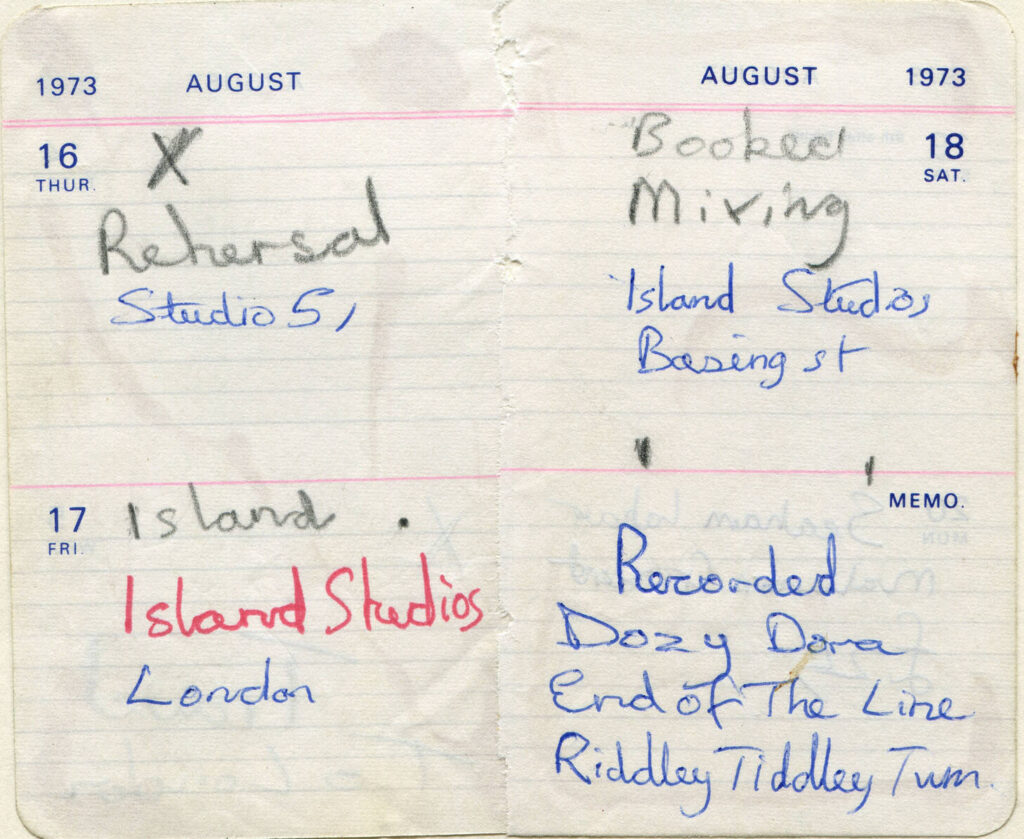 1973 AUGUST
16
THUR.
X
Rehersal
Studio 5,
17
FRI.
Island .
Island Studios
London
AUGUST 1973
18
SAT.
Booked
Mixing
Island Studios
Basing st
MEMO.
Recorded
Dozy Dora
End of The Line
Riddley Tiddley Tum.